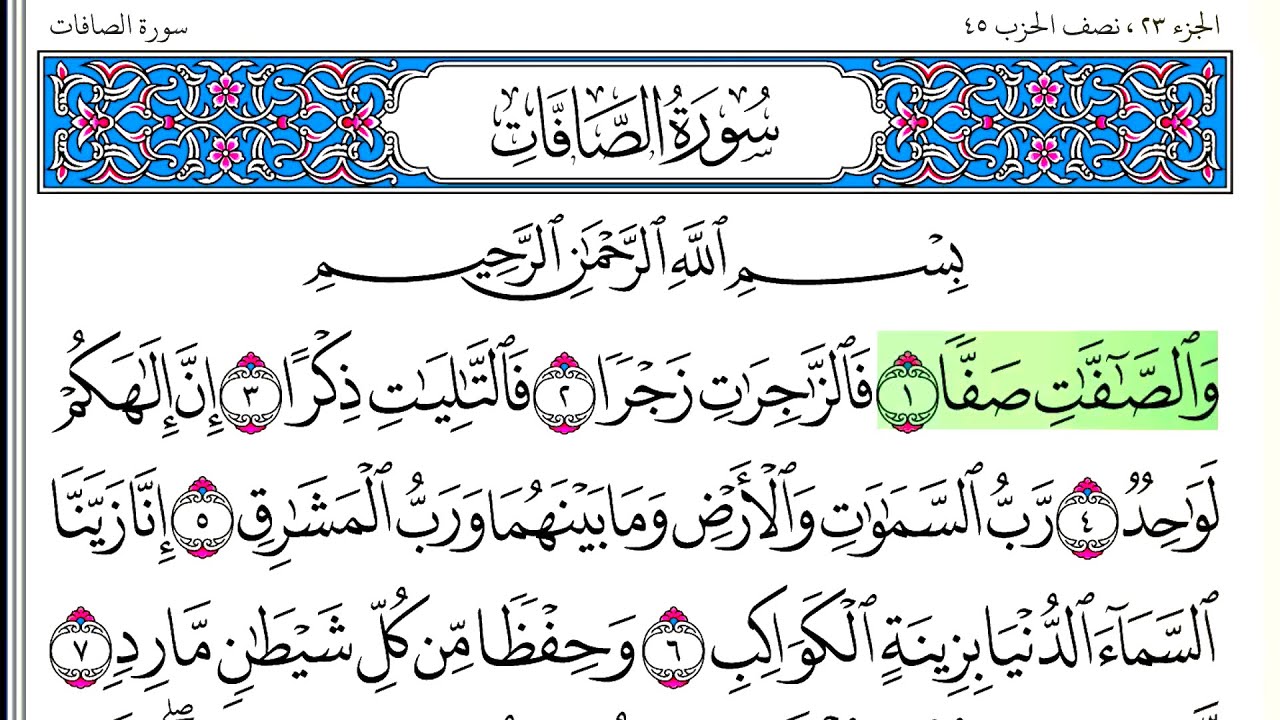 الجزء ٢٣ ، نصف الحزب ٤٥
سورة الصافات
سُورَةُ الصَّافَّاتِ
بِسْمِ ٱللَّهِ ٱلرَّحْمَٰنِ ٱلرَّحِيمِ
وَٱلصَّٰٓفَّٰتِ صَفًّا ١ فَٱلزَّٰجِرَٰتِ زَجْرًا ٢ فَٱلتَّٰلِيَٰتِ ذِكْرًا ٣ إِنَّ إِلَٰهَكُمْ
لَوَٰحِدٌ ٤ رَّبُّ ٱلسَّمَٰوَٰتِ وَٱلْأَرْضِ وَمَا بَيْنَهُمَا وَرَبُّ ٱلْمَشَٰرِقِ ٥ إِنَّا زَيَّنَّا
ٱلسَّمَآءَ ٱلدُّنْيَا بِزِينَةٍ ٱلْكَوَاكِبِ ٦ وَحِفْظًا مِّن كُلِّ شَيْطَٰنٍ مَّارِدٍ ٧